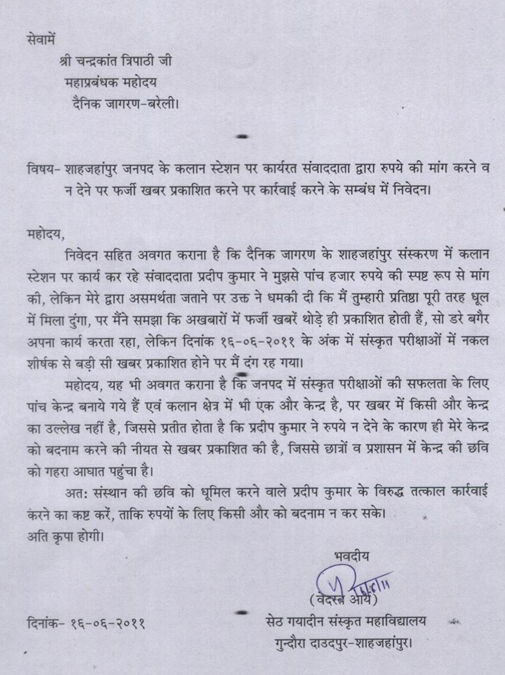 सेवामें
श्री चन्द्रकांत त्रिपाठी जी
महाप्रबंधक महोदय
दैनिक जागरण-बरेली।
विषय- शाहजहांपुर जनपद के कलान स्टेशन पर कार्यरत संवाददाता द्वारा रुपये की मांग करने व
न देने पर फर्जी खबर प्रकाशित करने पर कार्रवाई करने के सम्बंध में निवेदन।
महोदय,
निवेदन सहित अवगत कराना है कि दैनिक जागरण के शाहजहांपुर संस्करण में कलान
स्टेशन पर कार्य कर रहे संवाददाता प्रदीप कुमार ने मुझसे पांच हजार रुपये की स्पष्ट रूप से मांग
की, लेकिन मेरे द्वारा असमर्थता जताने पर उक्त ने धमकी दी कि मैं तुम्हारी प्रतिष्ठा पूरी तरह धूल
में मिला दुंगा, पर मैंने समझा कि अखबारों में फर्जी खबरें थोड़े ही प्रकाशित होती हैं, सो डरे बगैर
अपना कार्य करता रहा, लेकिन दिनांक १६-०६-२०११ के अंक में संस्कृत परीक्षाओं में नकल
शीर्षक से बड़ी सी खबर प्रकाशित होने पर मैं दंग रह गया।
महोदय, यह भी अवगत कराना है कि जनपद में संस्कृत परीक्षाओं की सफलता के लिए
पांच केन्द्र बनाये गये हैं एवं कलान क्षेत्र में भी एक और केन्द्र है, पर खबर में किसी और केन्द्र
का उल्लेख नहीं है, जिससे प्रतीत होता है कि प्रदीप कुमार ने रुपये न देने के कारण ही मेरे केन्द्र
को बदनाम करने की नीयत से खबर प्रकाशित की है, जिससे छात्रों व प्रशासन में केन्द्र की छवि
को गहरा आघात पहुंचा है।
अत: संस्थान की छवि को धूमिल करने वाले प्रदीप कुमार के विरुद्ध तत्काल कार्रवाई
करने का कष्ट करें, ताकि रुपयों के लिए किसी और को बदनाम न कर सके।
अति कृपा होगी।
भवदीय
(वेदरत्न आर्य)
दिनांक- १६-०६-२०११
सेठ गयादीन संस्कृत महाविद्यालय
गुन्दौरा दाउदपुर-शाहजहांपुर।